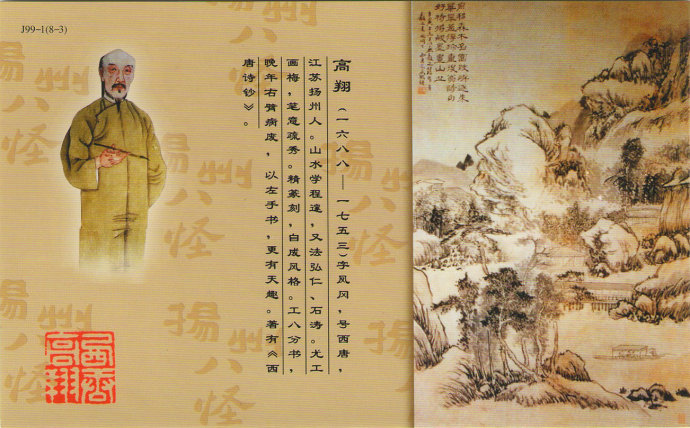 J99-1(8-3)
高翔(一六八八——一七五三)字凤冈,号西唐,
江苏扬州人。山水学程邃,又法弘仁、石涛。尤工
画梅,笔意疏秀。精篆刻,自成风格。工八分书,
晚年右臂病废,以左手书,更有天趣。著有《西
唐诗钞》。
揚州八怪